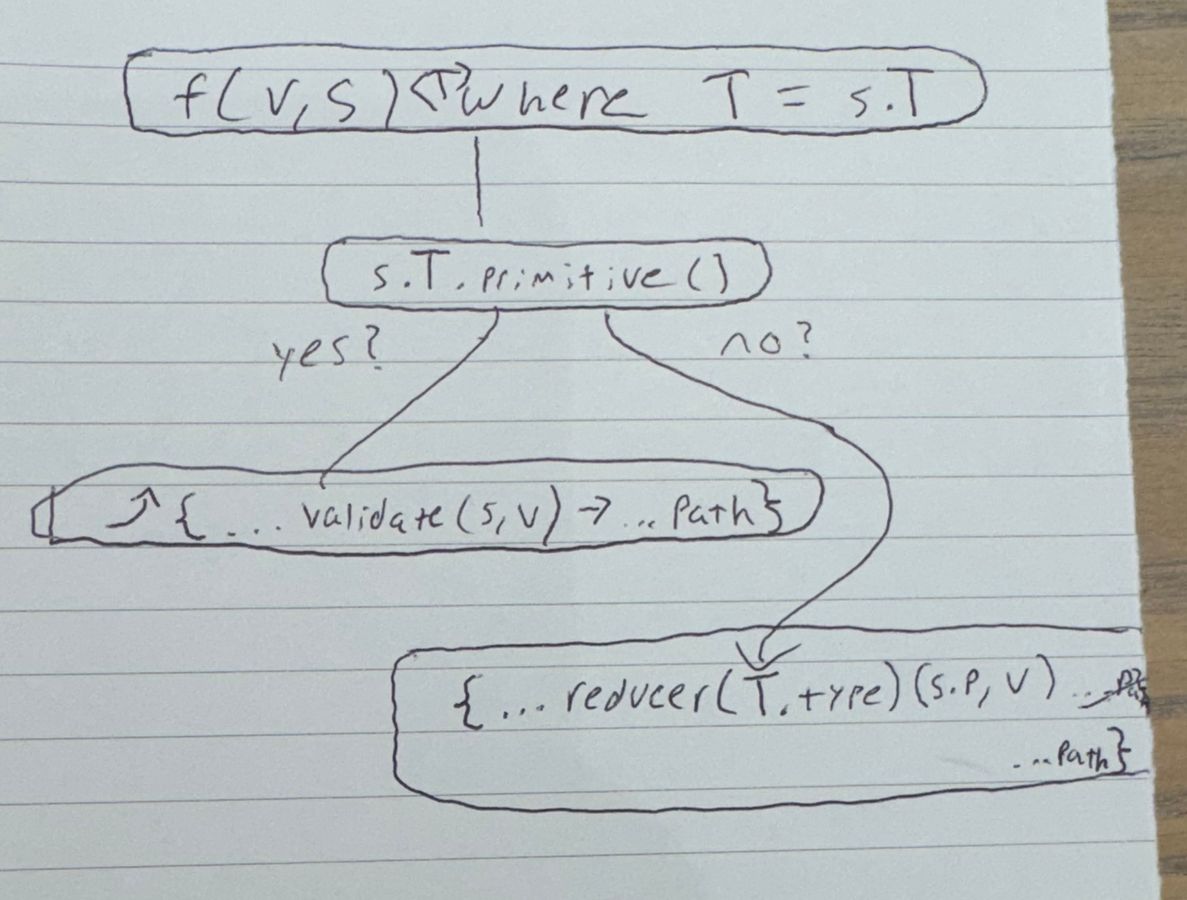 f(v,s)<T>where T = s.T
s.T.primitive()
yes?
no?
{ ... validate(s,v) → ... Path}
{ ... reducer(T.type)(s.P, v)
...Path}